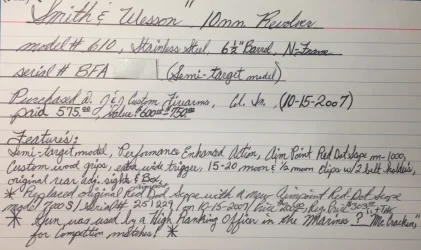 Smith & Wesson" 10mm Revolver
model # 610, Stainless Steel, 6½" Barrel, N-Frame
serial # BFA (Semi-target model)
Purchased @ J&J Custom Firearms, (10-15-2007)
paid 575.00 value $600-$750.00
Features:
Semi-target model, Performance Enhanced Action, Aim Point Red Dot Scope m-1000,
Custom wood grips, extra wide trigger, 15-20 moon & ½ moon clips w/2 belt holders,
original rear adj. sight & Box.
* Replaced original Red Dot Scope with a new Aimpoint Red Dot Scope
model 7000S / Serial # 251229 / on 10-15-2007/
* Gun was used by a High Ranking Officer in the Marines? "Mc Cracken"
for Competition matches! *